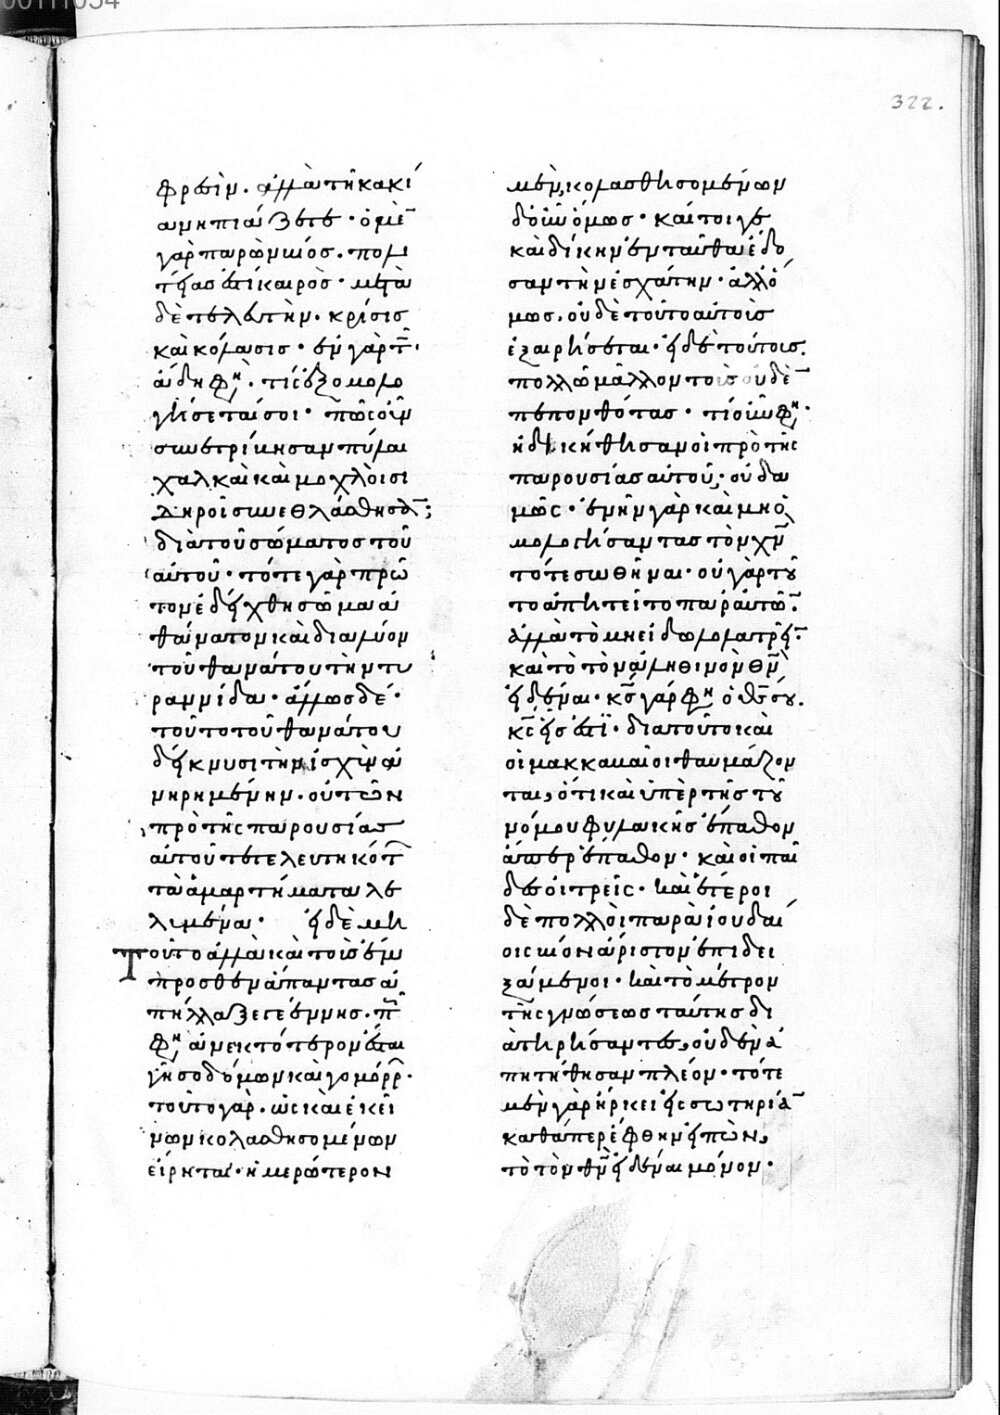 322.
φρεσὶν. ἀλλὰ τῆ κακί
α νηπιάζετε · ὁ μὲ̅
γὰρ παρὼν βίος. πολι
τείας ἐστὶ καιρὸς · μετὰ
δὲ τελευτὴν. κρίσις
καὶ κόλασις · ἐν γὰρ τ̅·
ἅδη φη · τίς ἐξομολο
γήσεταί σοι · πῶς οὖν
συνετρίβησαν πύλαι
χαλκαῖ καὶ μοχλοὶ σι
δηροῖ συνεθλάσθησα̅;
διὰ τοῦ σώματος τοῦ
αὐτοῦ · τότε γὰρ πρῶ
τον ἐδείχθη σῶμα ἀ
θάνατον καὶ διαλύον
τοῦ θανάτου τὴν τυ
ραννίδα · ἄλλως δέ ·
τοῦτο τοῦ θανάτου
δείκνυσι τὴν ἰσχὺν ἀ
νηρημένην. οὐ τῶν
πρὸ τῆς παρουσίας
αὐτοῦ τετελευτηκότ̅
τὰ ἁμαρτήματα λε
λυμένα · εἰ δὲ μὴ
Τοῦτο ἀλλὰ καὶ τοὺς ἔμ
προσθεν ἅπαντας ἀ
πήλλαξε γεέννης. π̅
φη, ἀνεκτότερον ἔσται
γῆ σοδόμων καὶ γομόρρ̅·
τοῦτο γὰρ. ὡς καὶ ἐκεί
νων κολασθησομένων
εἴρηται · ἡμερώτερον
μὲν, κολασθησομένων
δ' οὖν ὅμως · καίτοι γε
καὶ δίκην ἐνταῦθα ἔδο
σαν τὴν ἐσχάτην · ἀλλ' ὅ
μως, οὐδὲ τοῦτο αὐτοὺς
ἐξαιρήσεται · εἰ δὲ τούτους,
πολλῷ μᾶλλον τοὺς οὐδὲ̅
πεπονθότας · τί οὖν φη·
ἠδικήθησαν οἱ πρὸ τῆς
παρουσίας αὐτοῦ; οὐδα
μῶς · ἐνῆν γὰρ καὶ μὴ ὁ
μολογήσαντας τὸν χν̅
τότε σωθῆναι · οὐ γὰρ τοῦ
το ἀπητεῖτο παρ' αὐτῶ̅·
ἀλλὰ τὸ μὴ εἰδωλολατρεῖ̅·
καὶ τὸ τὸν ἀληθινὸν θν̅
εἰδέναι · κς̅ γὰρ φη ὁ θς̅ σου.
κς̅ εἷς ἐστὶ · διὰ τοῦτο καὶ
οἱ μακκαβαῖοι θαυμάζον
ται, ὅτι καὶ ὑπὲρ τῆς τοῦ
νόμου φυλακῆς ἔπαθον
ἅπερ ἔπαθον · καὶ οἱ παῖ
δες οἱ τρεῖς · καὶ ἕτεροι
δὲ πολλοὶ παρὰ ἰουδαί
οις βίον ἄριστον ἐπιδει
ξάμενοι · καὶ τὸ μέτρον
τῆς γνώσεως ταύτης δι
ατηρήσαντες, οὐδὲν ἀ
πητήθησαν πλέον · τότε
μὲν γὰρ ἤρκει εἰς σωτηρία̅
καθάπερ ἔφθην εἰπὼν,
τὸ τὸν θν̅ εἰδέναι μόνον ·